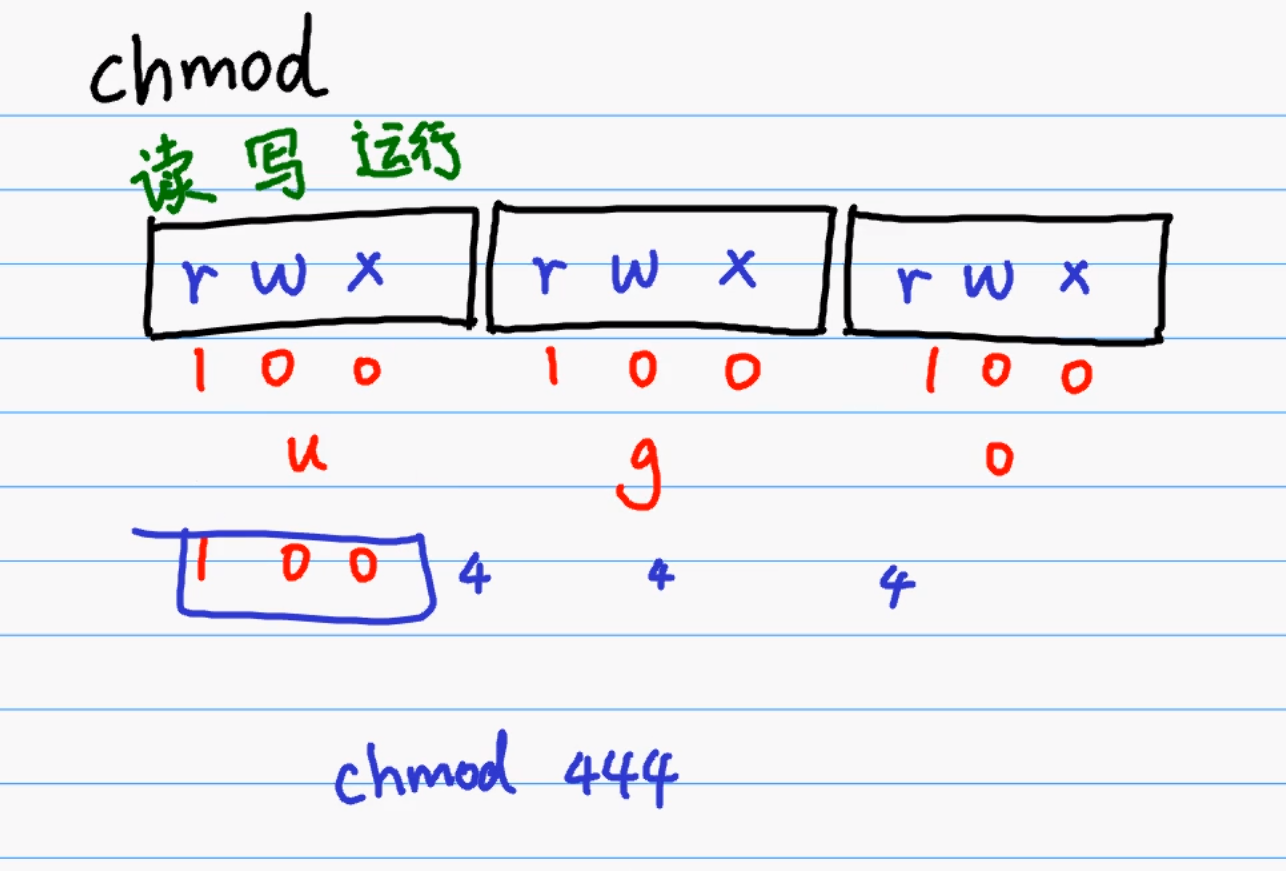 chmod
读 写 运行
r w x r w x r w x
1 0 0 1 0 0 1 0 0
u g o
1 0 0 4 4 4
chmod 444